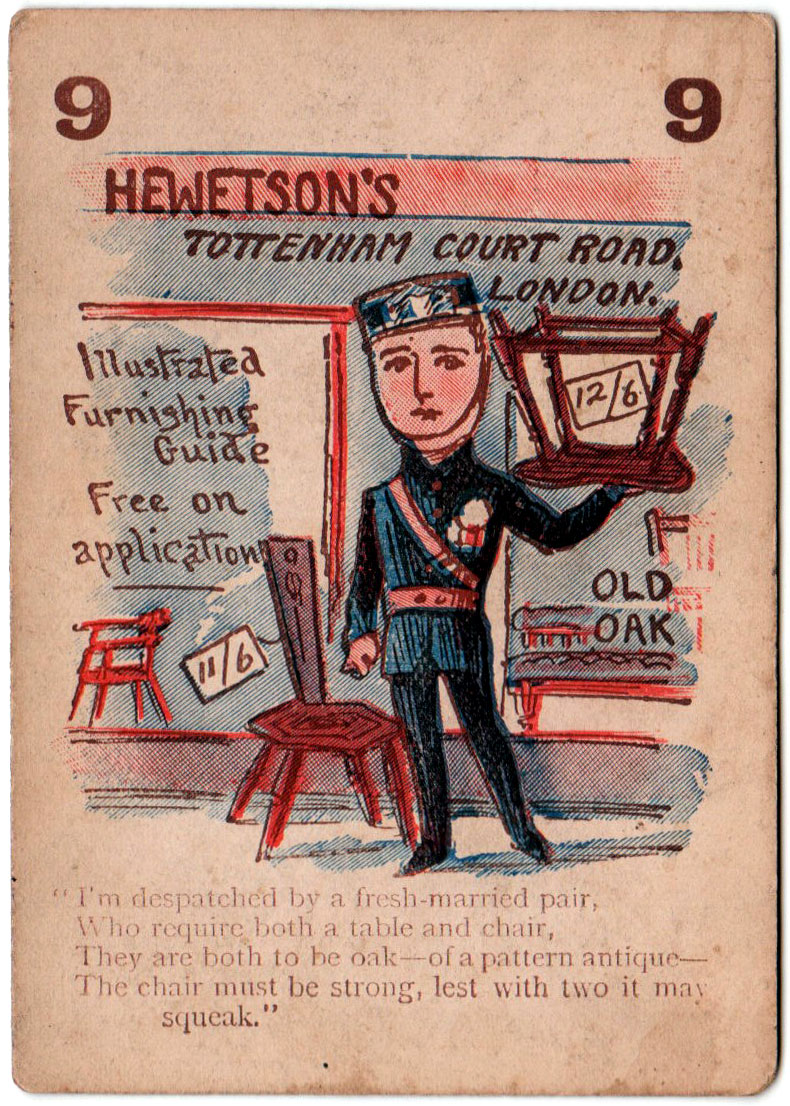 9 9
HEWETSON'S
TOTTENHAM COURT ROAD,
LONDON.
Illustrated
Furnishing
Guide
Free on
application
12/6
11/6
OLD
OAK
“I'm despatched by a fresh-married pair,
Who require both a table and chair,
They are both to be oak—of a pattern antique—
The chair must be strong, lest with two it may
squeak.”